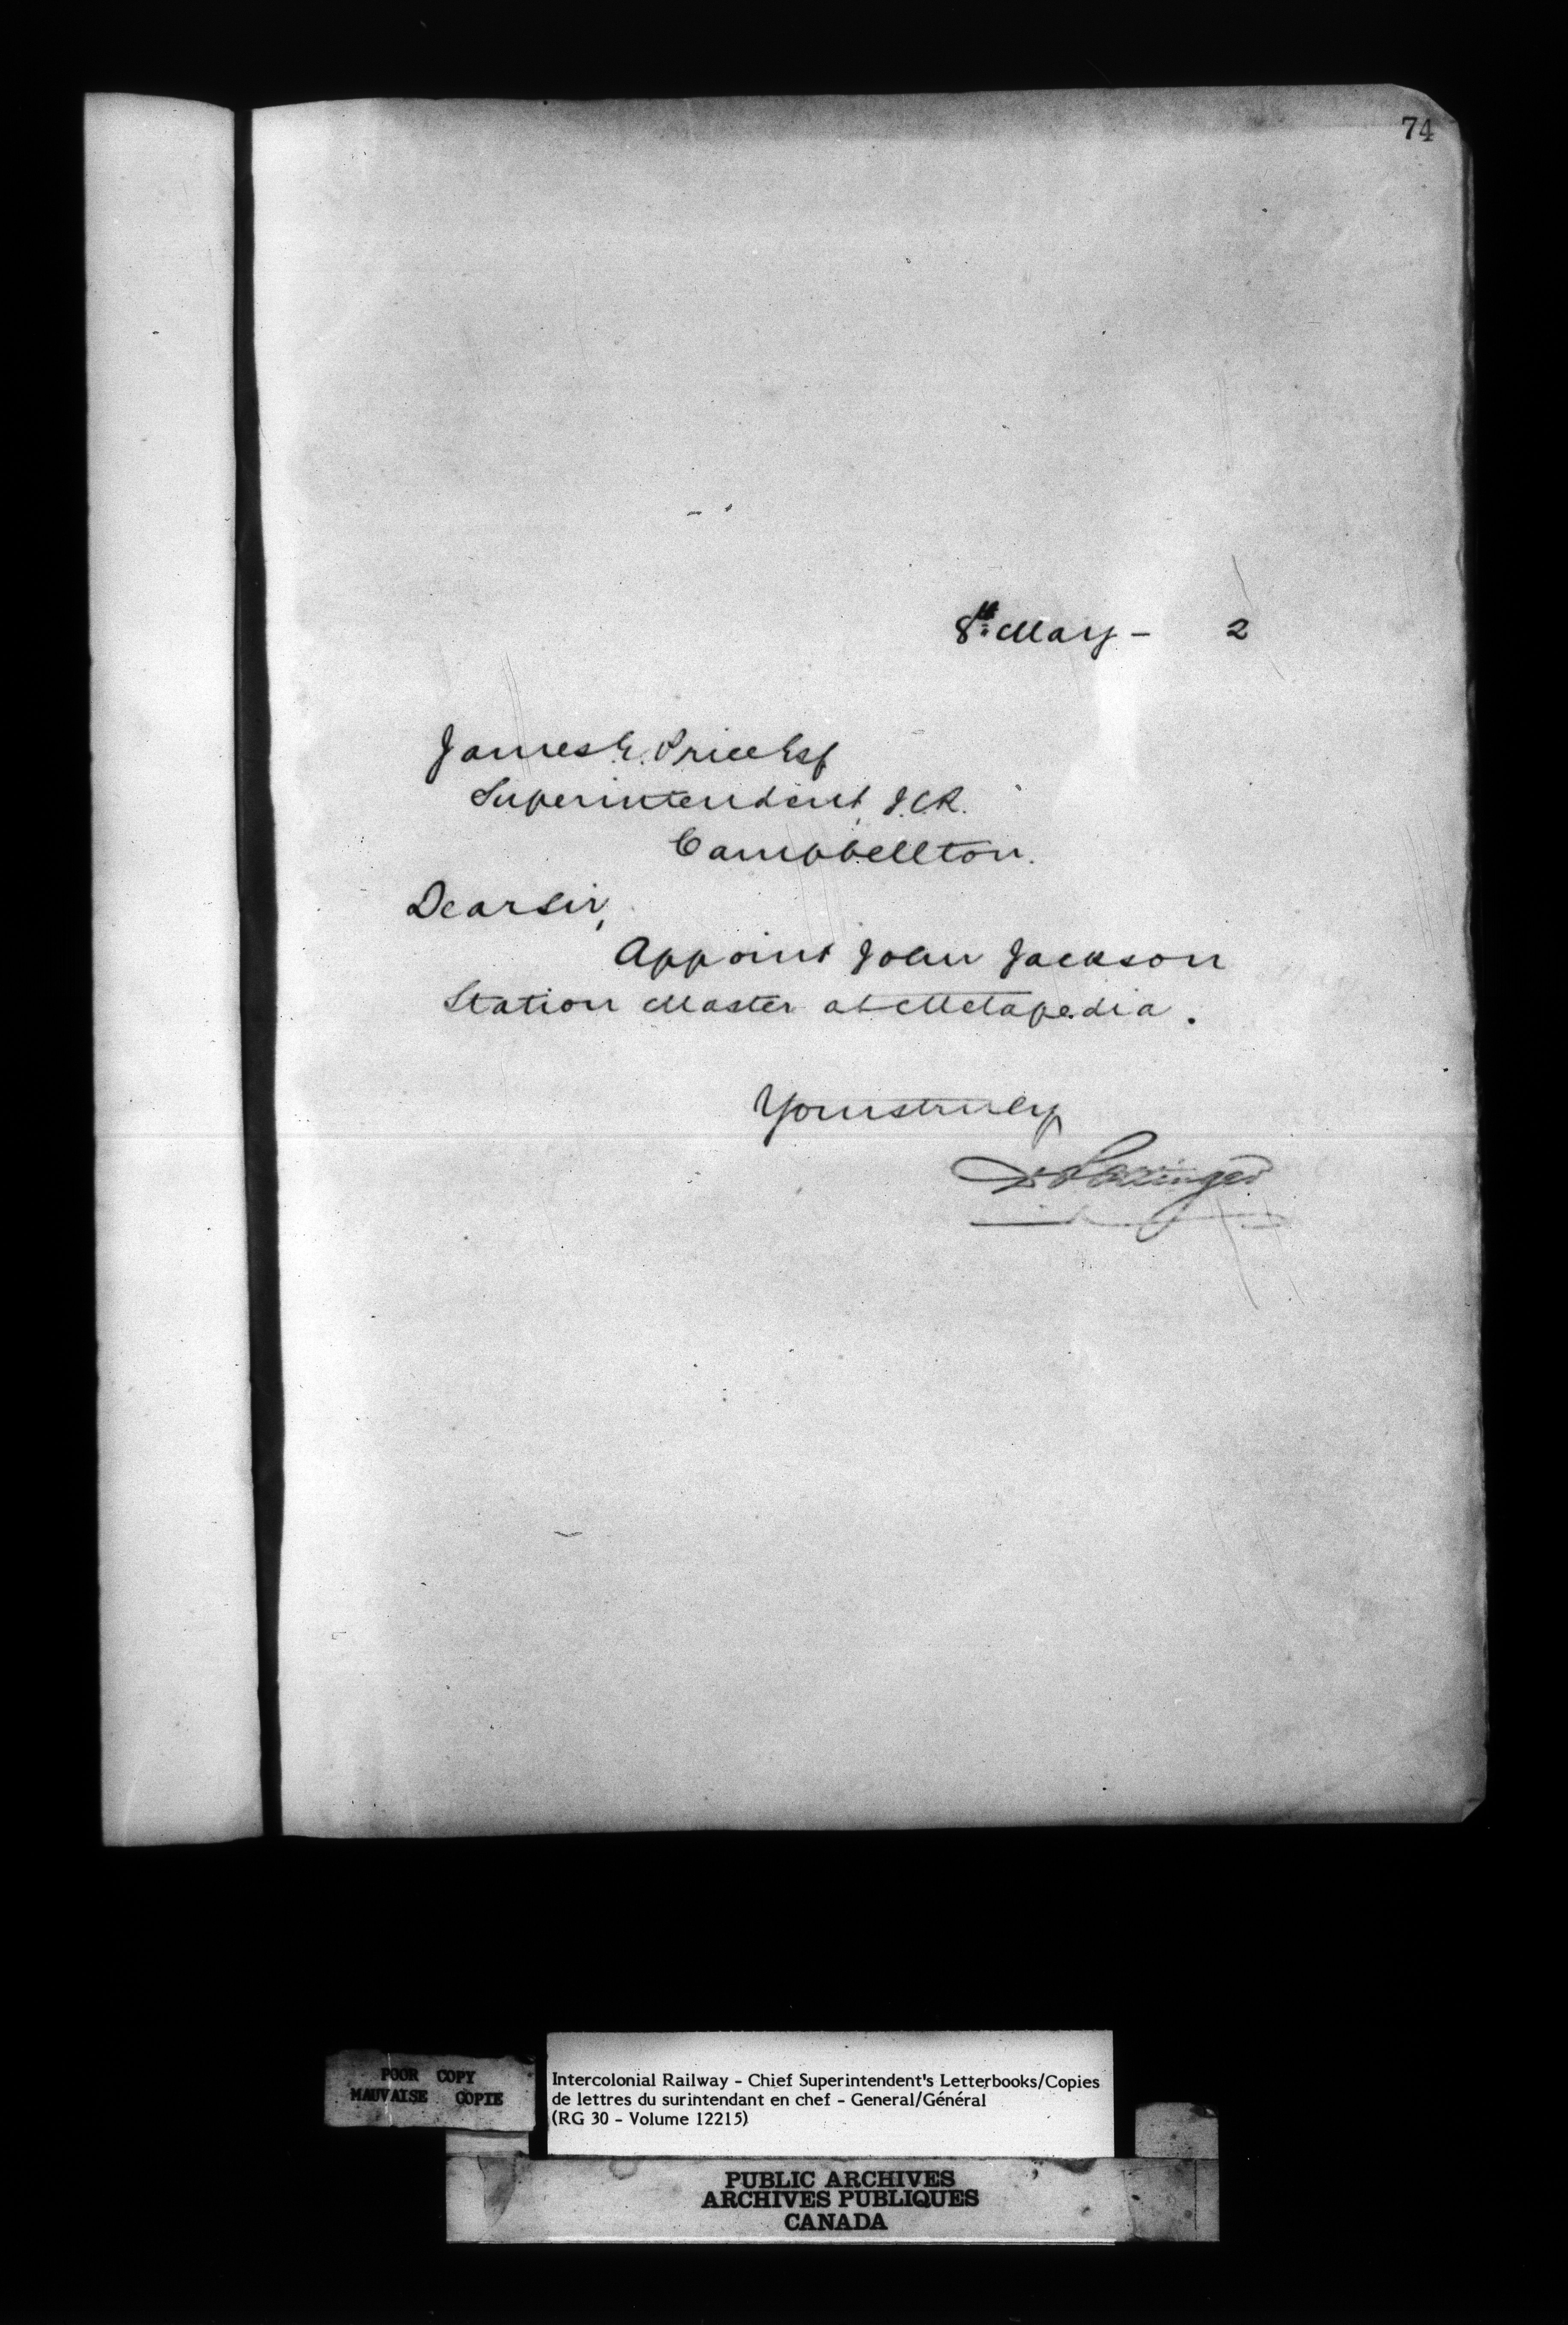 74
8th May - 2
James E. Price Esq
Superintendent, I.C.R.
Campbellton.
Dear Sir,
Appoint John Jackson
Station Master at Metapedia.
Yours truly
D Pottinger
POOR COPY
MAUVAISE COPIE
Intercolonial Railway - Chief Superintendent's Letterbooks/Copies
de lettres du surintendant en chef - General/Général
(RG 30 - Volume 12215)
PUBLIC ARCHIVES
ARCHIVES PUBLIQUES
CANADA